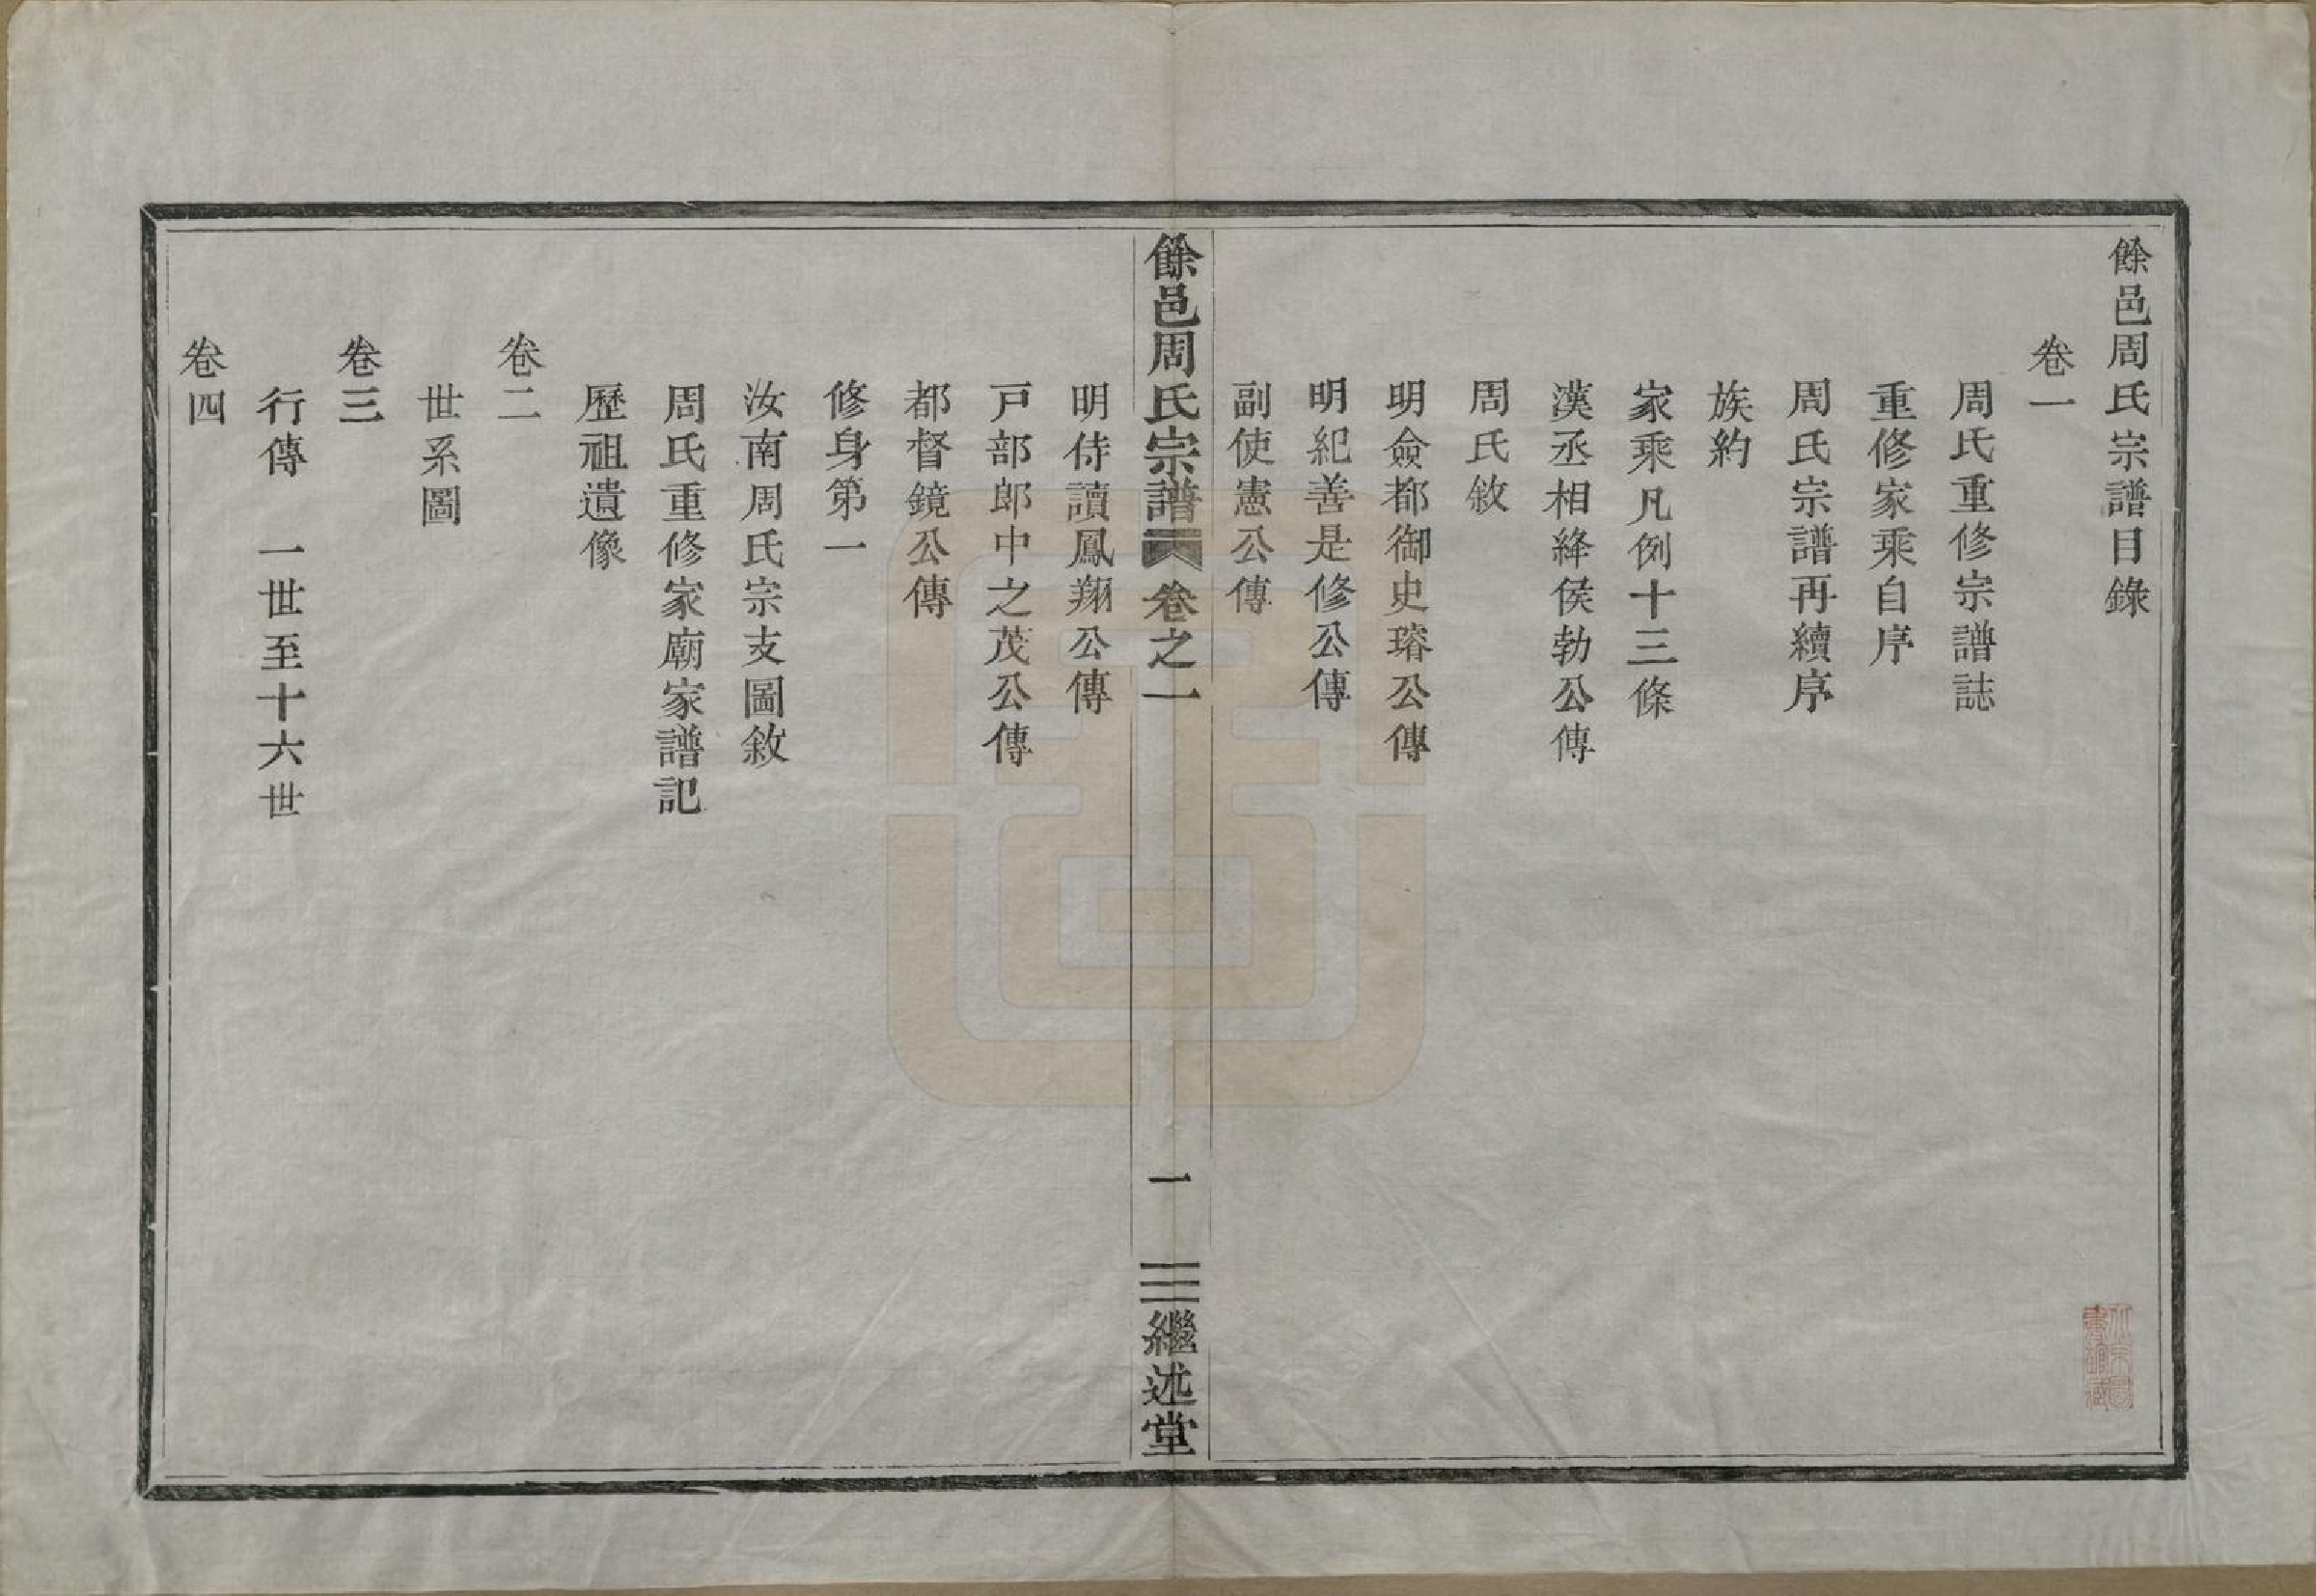 餘邑周氏宗譜目錄
卷一
周氏重修宗譜誌
重修家乘自序
周氏宗譜再續序
族約
家乘凡例十三條
漢丞相絳侯勃公傳
周氏敘
明僉都御史瑢公傳
明紀善是修公傳
副使憲公傳
餘邑周氏宗譜 卷之一 一 繼述堂
明侍讀鳳翔公傳
戸部郎中之茂公傳
都督鏡公傳
修身第一
汝南周氏宗支圖敘
周氏重修家廟家譜記
歷祖遺像
卷二
世系圖
卷三
行傳 一世至十六世
卷四